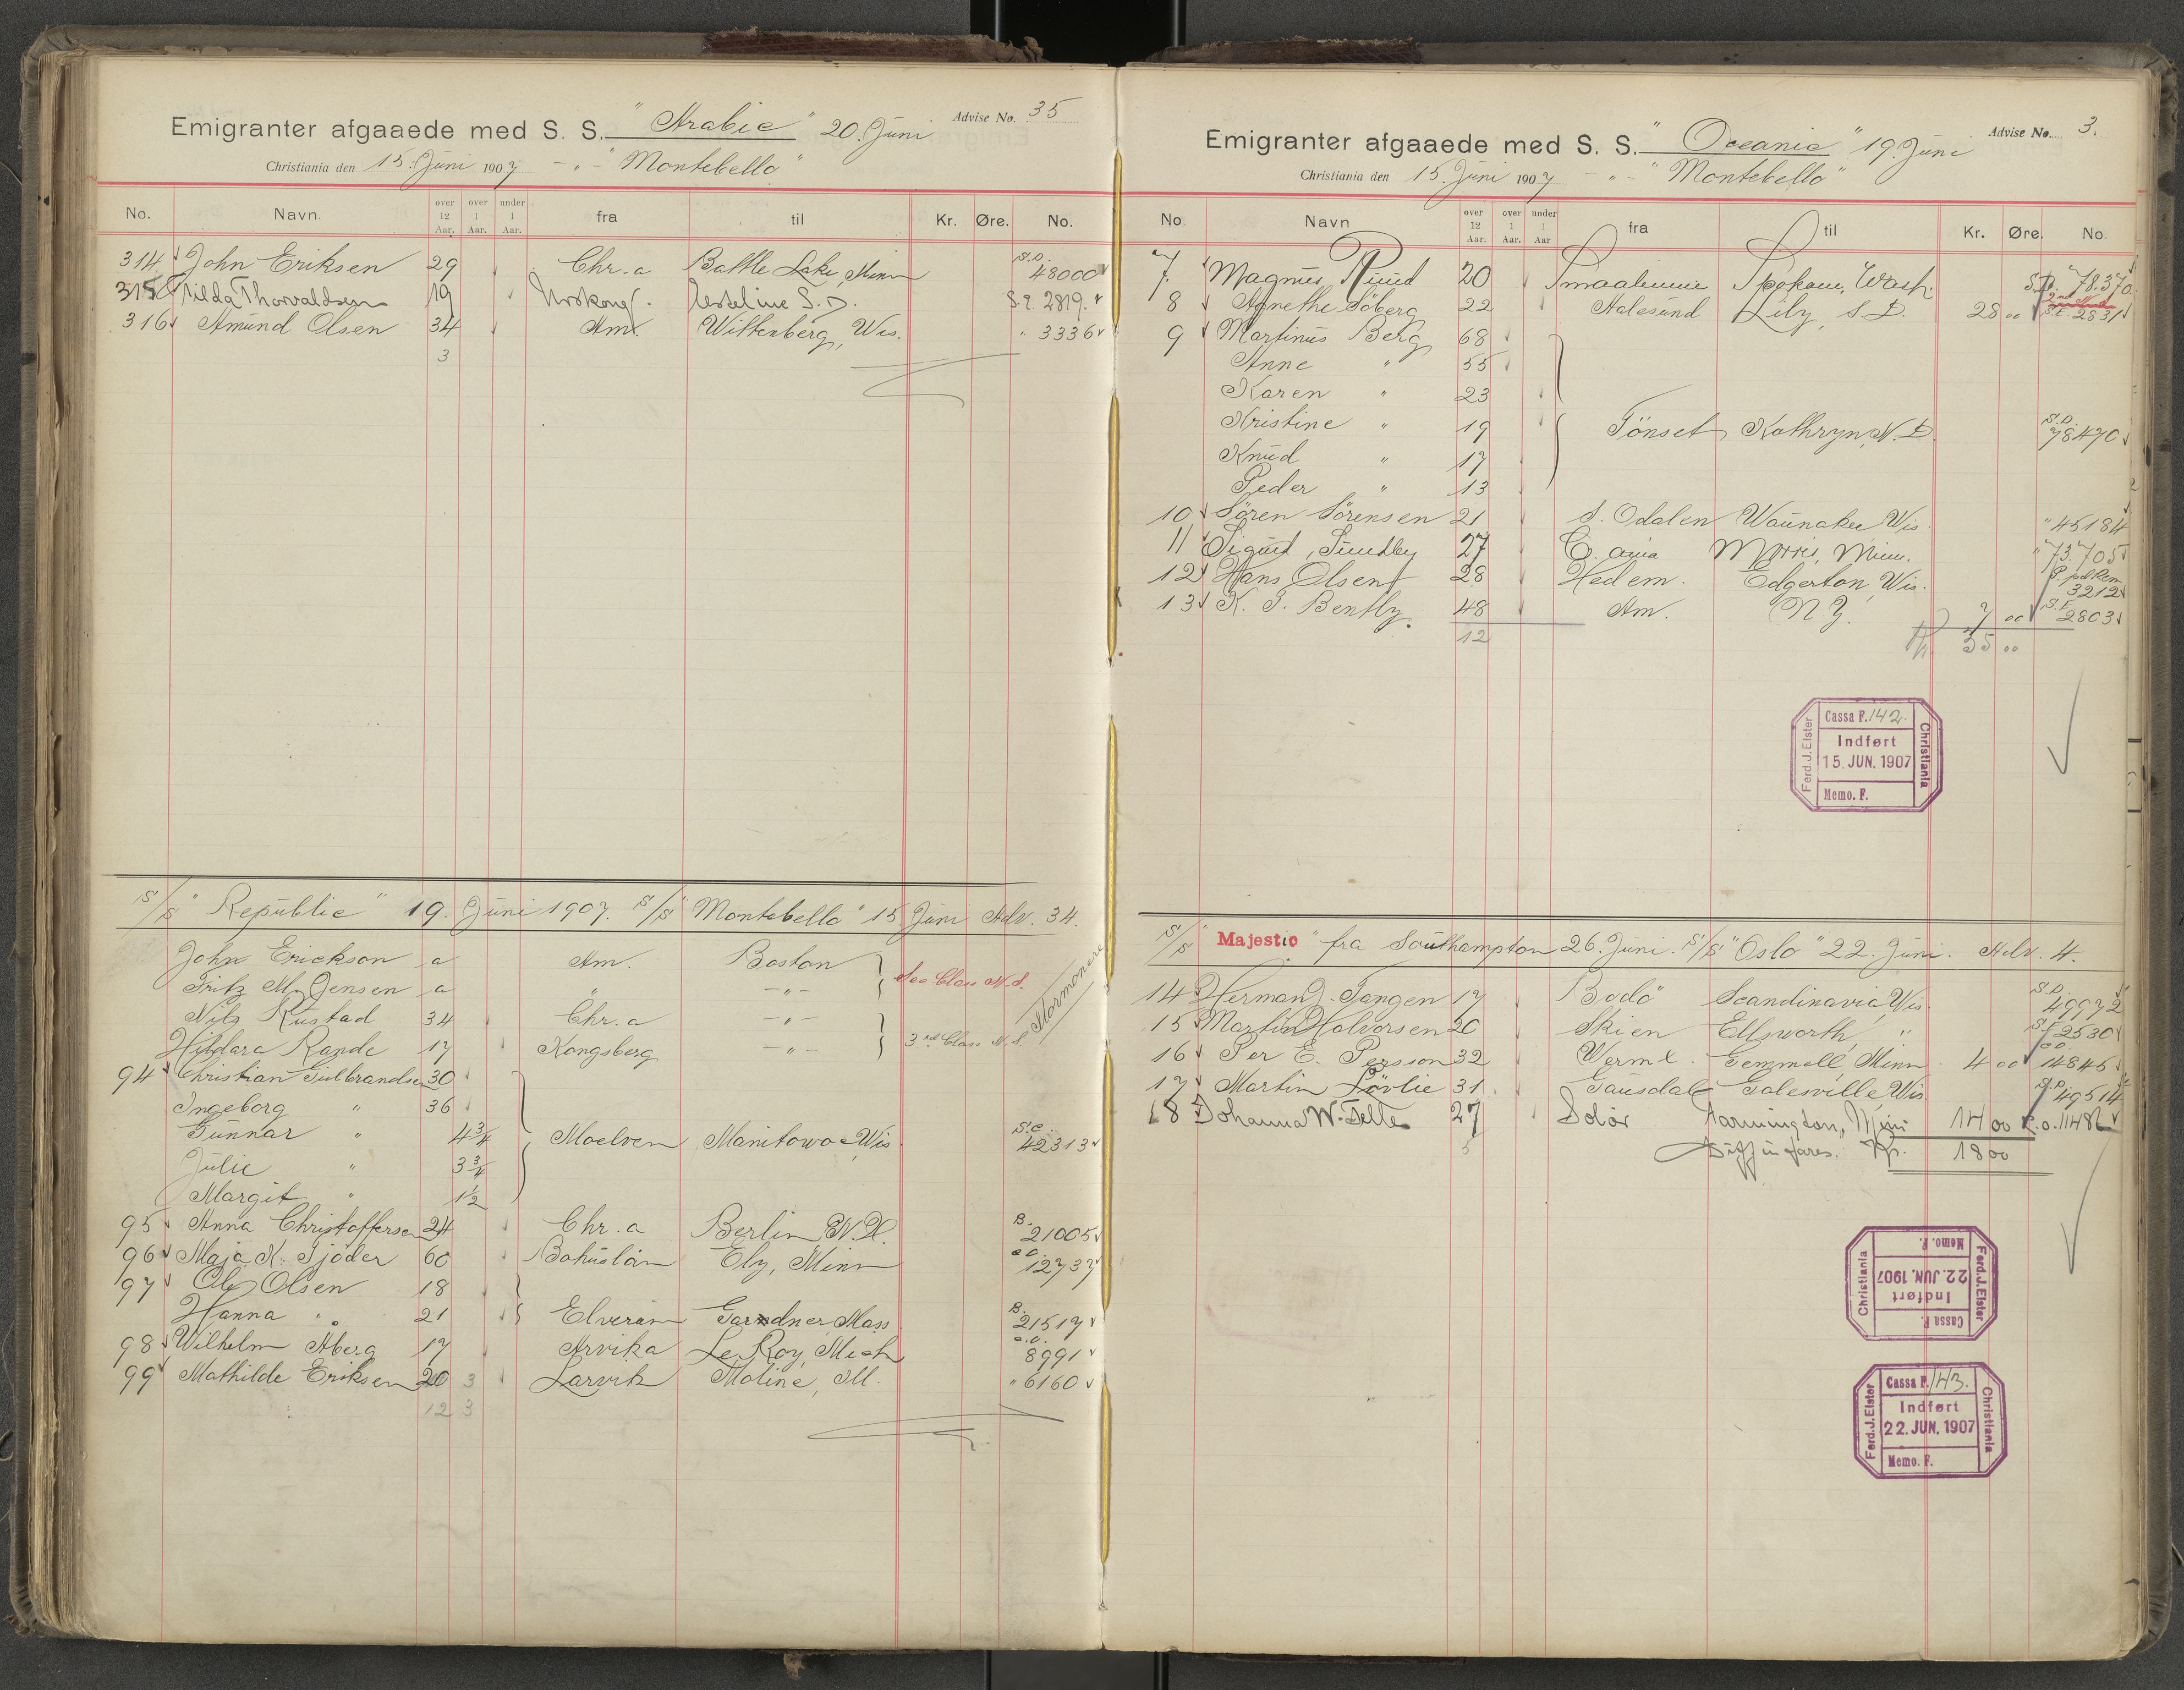 Emigranter afgaaede med S. S. "Arabic" 20. Juni Advise No. 35
Christiania den 15. Juni 1907 - " - "Montebello"
No. Navn. over 12 Aar. over 1 Aar. under 1 Aar. fra til Kr. Øre. No.
314 John Eriksen 29 Chr.a Battle Lake, Minn S.O. 48000
315 Tilda Thorvaldsen 19 S.D. S.E. 2819.
316 Amund Olsen 34 Am. Wittenberg, Wis. " 3336
3
S/S "Republic" 19. Juni 1907. S/S "Montebello" 15 Juni Adv. 34.
John Erickson a Am. Boston
Fritz M. Jensen a " - " - Sec Class N.S.
Nils Rustad 34 Chr.a - " -
Hildara Rande 17 Kongsberg - " - 3rd Class N.S. Mormonere
94 Christian Gulbrandsen 30
Ingeborg " 36
Gunnar " 4 3/4 Moelven Manitowoc Wis S.C. 42313
Julie " 3 3/4
Margit " 1 1/2
95 Anna Christoffersen 24 Chr.a Berlin N.H. B. 21005
96 Maja K. Sjöder 60 Bohuslän Ely, Minn C.O. 12737
97 Ole Olsen 18
Hanna " 21 Elverum Gardner Mass B. 21517
98 Wilhelm Åberg 17 Arvika Le Roy, Mich C.O. 8991
99 Mathilde Eriksen 20 3 Larvik Moline, Ill. " 6160
12 3
Emigranter afgaaede med S. S. "Oceanic" 19. Juni Advise No. 3.
Christiania den 15. Juni 1907 - " - "Montebello"
No. Navn over 12 Aar. over 1 Aar. under 1 Aar fra til Kr. Øre. No.
7. Magnus Ruud 20 Smaalenene Spokane, Wash. S.O. 78370.
8 Agnethe Söberg 22 Aalesund Lily, S.D. 28 00 S.E. 2831
9 Martinus Berg 68
Anne " 55
Karen " 23
Kristine " 19 Tönset Kathryn, N.D. S.O. 78470
Knud " 17
Peder " 13
10 Sören Sörensen 21 S. Odalen Waunakee Wis. " 45184
11 Sigurd Sundby 27 C.ania Morris, Minn. " 73705
12 Hans Olsen 28 Hedem. Edgerton, Wis. 3212
13 K. T. Bently 48 Am. N.Y. 7 00 S.E. 2803
12 35 00
Cassa F. 142.
Indført
15. JUN. 1907
Memo. F.
Ferd. J. Elster
Christiania
S/S "Majestic" fra Southampton 26. Juni. S/S "Oslo" 22. Juni. Adv. 4.
14 Herman J. Tangen 17 Bodö Scandinavia, Wis S.O. 49972
15 Martin Halvorsen 20 Skien Ellsworth, " 2530
16 Per E. Persson 32 Werml. Gemmell, Minn. 4 00 C.O. 14845
17 Martin Lövlie 31 Gausdal Galesville, Wis S.O. 49514
18 Johanna W. Telle 27 Solör Farmington, Minn 14 00 C.O. 11486
5 Diff in fares. Kr. 18 00
Cassa F.
Indført
22. JUN. 1907
Memo. F.
Ferd. J. Elster
Christiania
Cassa F. 143.
Indført
22. JUN. 1907
Memo. F.
Ferd. J. Elster
Christiania